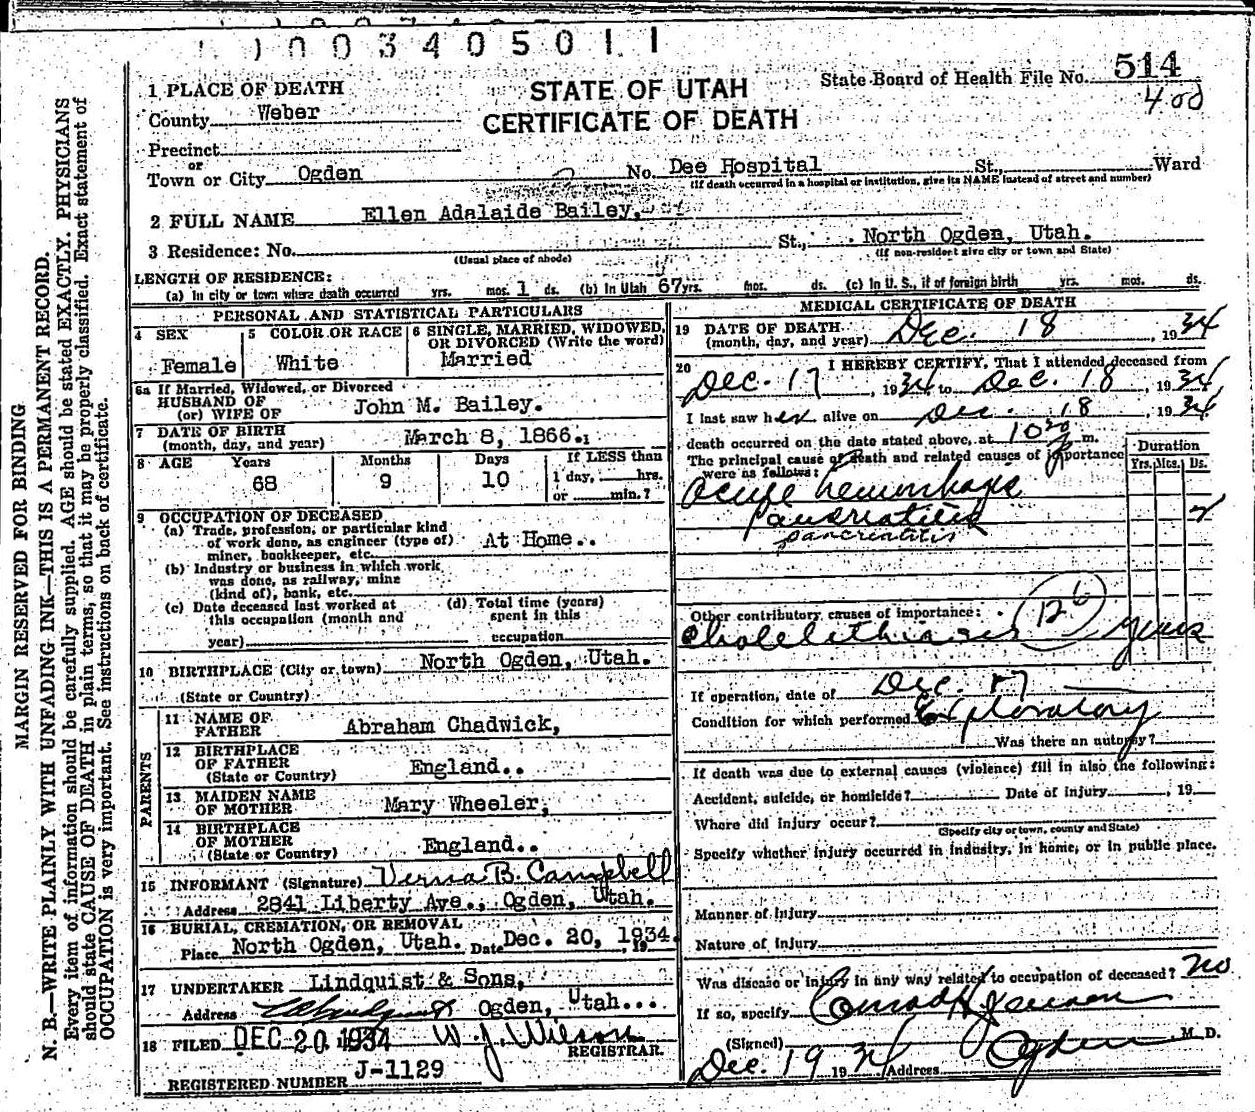 1003405011
State Board of Health File No. 514
400
STATE OF UTAH
CERTIFICATE OF DEATH
1 PLACE OF DEATH
County Weber
Precinct
or
Town or City Ogden No. Dee Hospital St., Ward
(If death occurred in a hospital or institution, give its NAME instead of street and number)
2 FULL NAME Ellen Adalaide Bailey,
3 Residence: No. St., North Ogden, Utah.
(Usual place of abode) (If non-resident give city or town and State)
LENGTH OF RESIDENCE:
(a) In city or town where death occurred yrs. mos. 1 ds. (b) In Utah 67 yrs. mos. ds. (c) In U. S., if of foreign birth yrs. mos. ds.
PERSONAL AND STATISTICAL PARTICULARS
4 SEX
Female
5 COLOR OR RACE
White
6 SINGLE, MARRIED, WIDOWED,
OR DIVORCED (Write the word)
Married
6a If Married, Widowed, or Divorced
HUSBAND OF
(or) WIFE OF John M. Bailey.
7 DATE OF BIRTH
(month, day, and year) March 8, 1866.
8 AGE Years Months Days If LESS than
68 9 10 1 day, hrs.
or min.?
9 OCCUPATION OF DECEASED
(a) Trade, profession, or particular kind
of work done, as engineer (type of)
miner, bookkeeper, etc. At Home..
(b) Industry or business in which work
was done, as railway, mine
(kind of), bank, etc.
(c) Date deceased last worked at
this occupation (month and
year)
(d) Total time (years)
spent in this
occupation
10 BIRTHPLACE (City or town) North Ogden, Utah.
(State or Country)
PARENTS
11 NAME OF
FATHER Abraham Chadwick,
12 BIRTHPLACE
OF FATHER England..
(State or Country)
13 MAIDEN NAME
OF MOTHER Mary Wheeler,
14 BIRTHPLACE
OF MOTHER England..
(State or Country)
15 INFORMANT (Signature) Verna B. Campbell
Address 2841 Liberty Ave., Ogden, Utah.
16 BURIAL, CREMATION, OR REMOVAL
Place North Ogden, Utah. Date Dec. 20, 1934.
17 UNDERTAKER Lindquist & Sons,
Address Ogden, Utah...
18 FILED DEC 20 1934 W. J. Wilson
REGISTRAR.
REGISTERED NUMBER J-1129
MEDICAL CERTIFICATE OF DEATH
19 DATE OF DEATH
(month, day, and year) Dec. 18, 1934
20 I HEREBY CERTIFY, That I attended deceased from
Dec. 17, 1934 to Dec. 18, 1934,
I last saw her alive on Dec. 18, 1934
death occurred on the date stated above, at 10 m.
The principal cause of death and related causes of importance
were as follows:
Duration
Yrs. Mos. Ds.
Acute hemorrhagic
pancreatitis 2
pancreatitis
Other contributory causes of importance:
Cholelithiasis years
If operation, date of Dec. 17
Condition for which performed Exploratory
Was there an autopsy?
If death was due to external causes (violence) fill in also the following:
Accident, suicide, or homicide? Date of injury , 19
Where did injury occur?
(Specify city or town, county and State)
Specify whether injury occurred in industry, in home, or in public place.
Manner of Injury
Nature of Injury
Was disease or injury in any way related to occupation of deceased? No
If so, specify
(Signed) Conrad H Jenson M. D.
Dec. 19 1934 Address Ogden
MARGIN RESERVED FOR BINDING
N. B.—WRITE PLAINLY WITH UNFADING INK—THIS IS A PERMANENT RECORD.
Every item of information should be carefully supplied. AGE should be stated EXACTLY. PHYSICIANS
should state CAUSE OF DEATH in plain terms, so that it may be properly classified. Exact statement of
OCCUPATION is very important. See instructions on back of certificate.